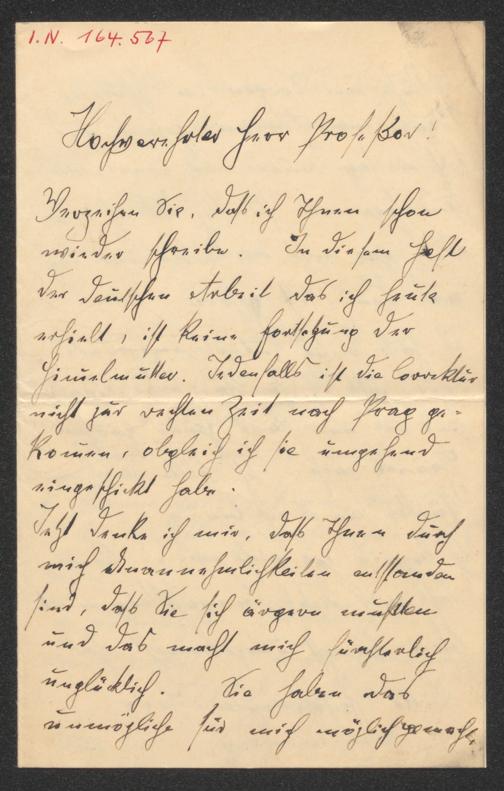 I.N. 164.567
Hochverehrter Herr Professor!
Verzeihen Sie, daß ich Ihnen schon
wieder schreibe. In diesem Heft
der deutschen Arbeit das ich heute
erhielt, ist keine Fortsetzung der
Himelmutter. Jedenfalls ist die Correktur
nicht zur rechten Zeit nach Prag ge-
komen, obgleich ich sie umgehend
eingeschickt habe.
Jetzt denke ich mir, daß Ihnen durch
mich Unannehmlichkeiten entstanden
sind, daß Sie sich ärgern mußten
und das macht mich fürchterlich
unglücklich. Sie haben das
unmögliche für mich möglich gemacht,